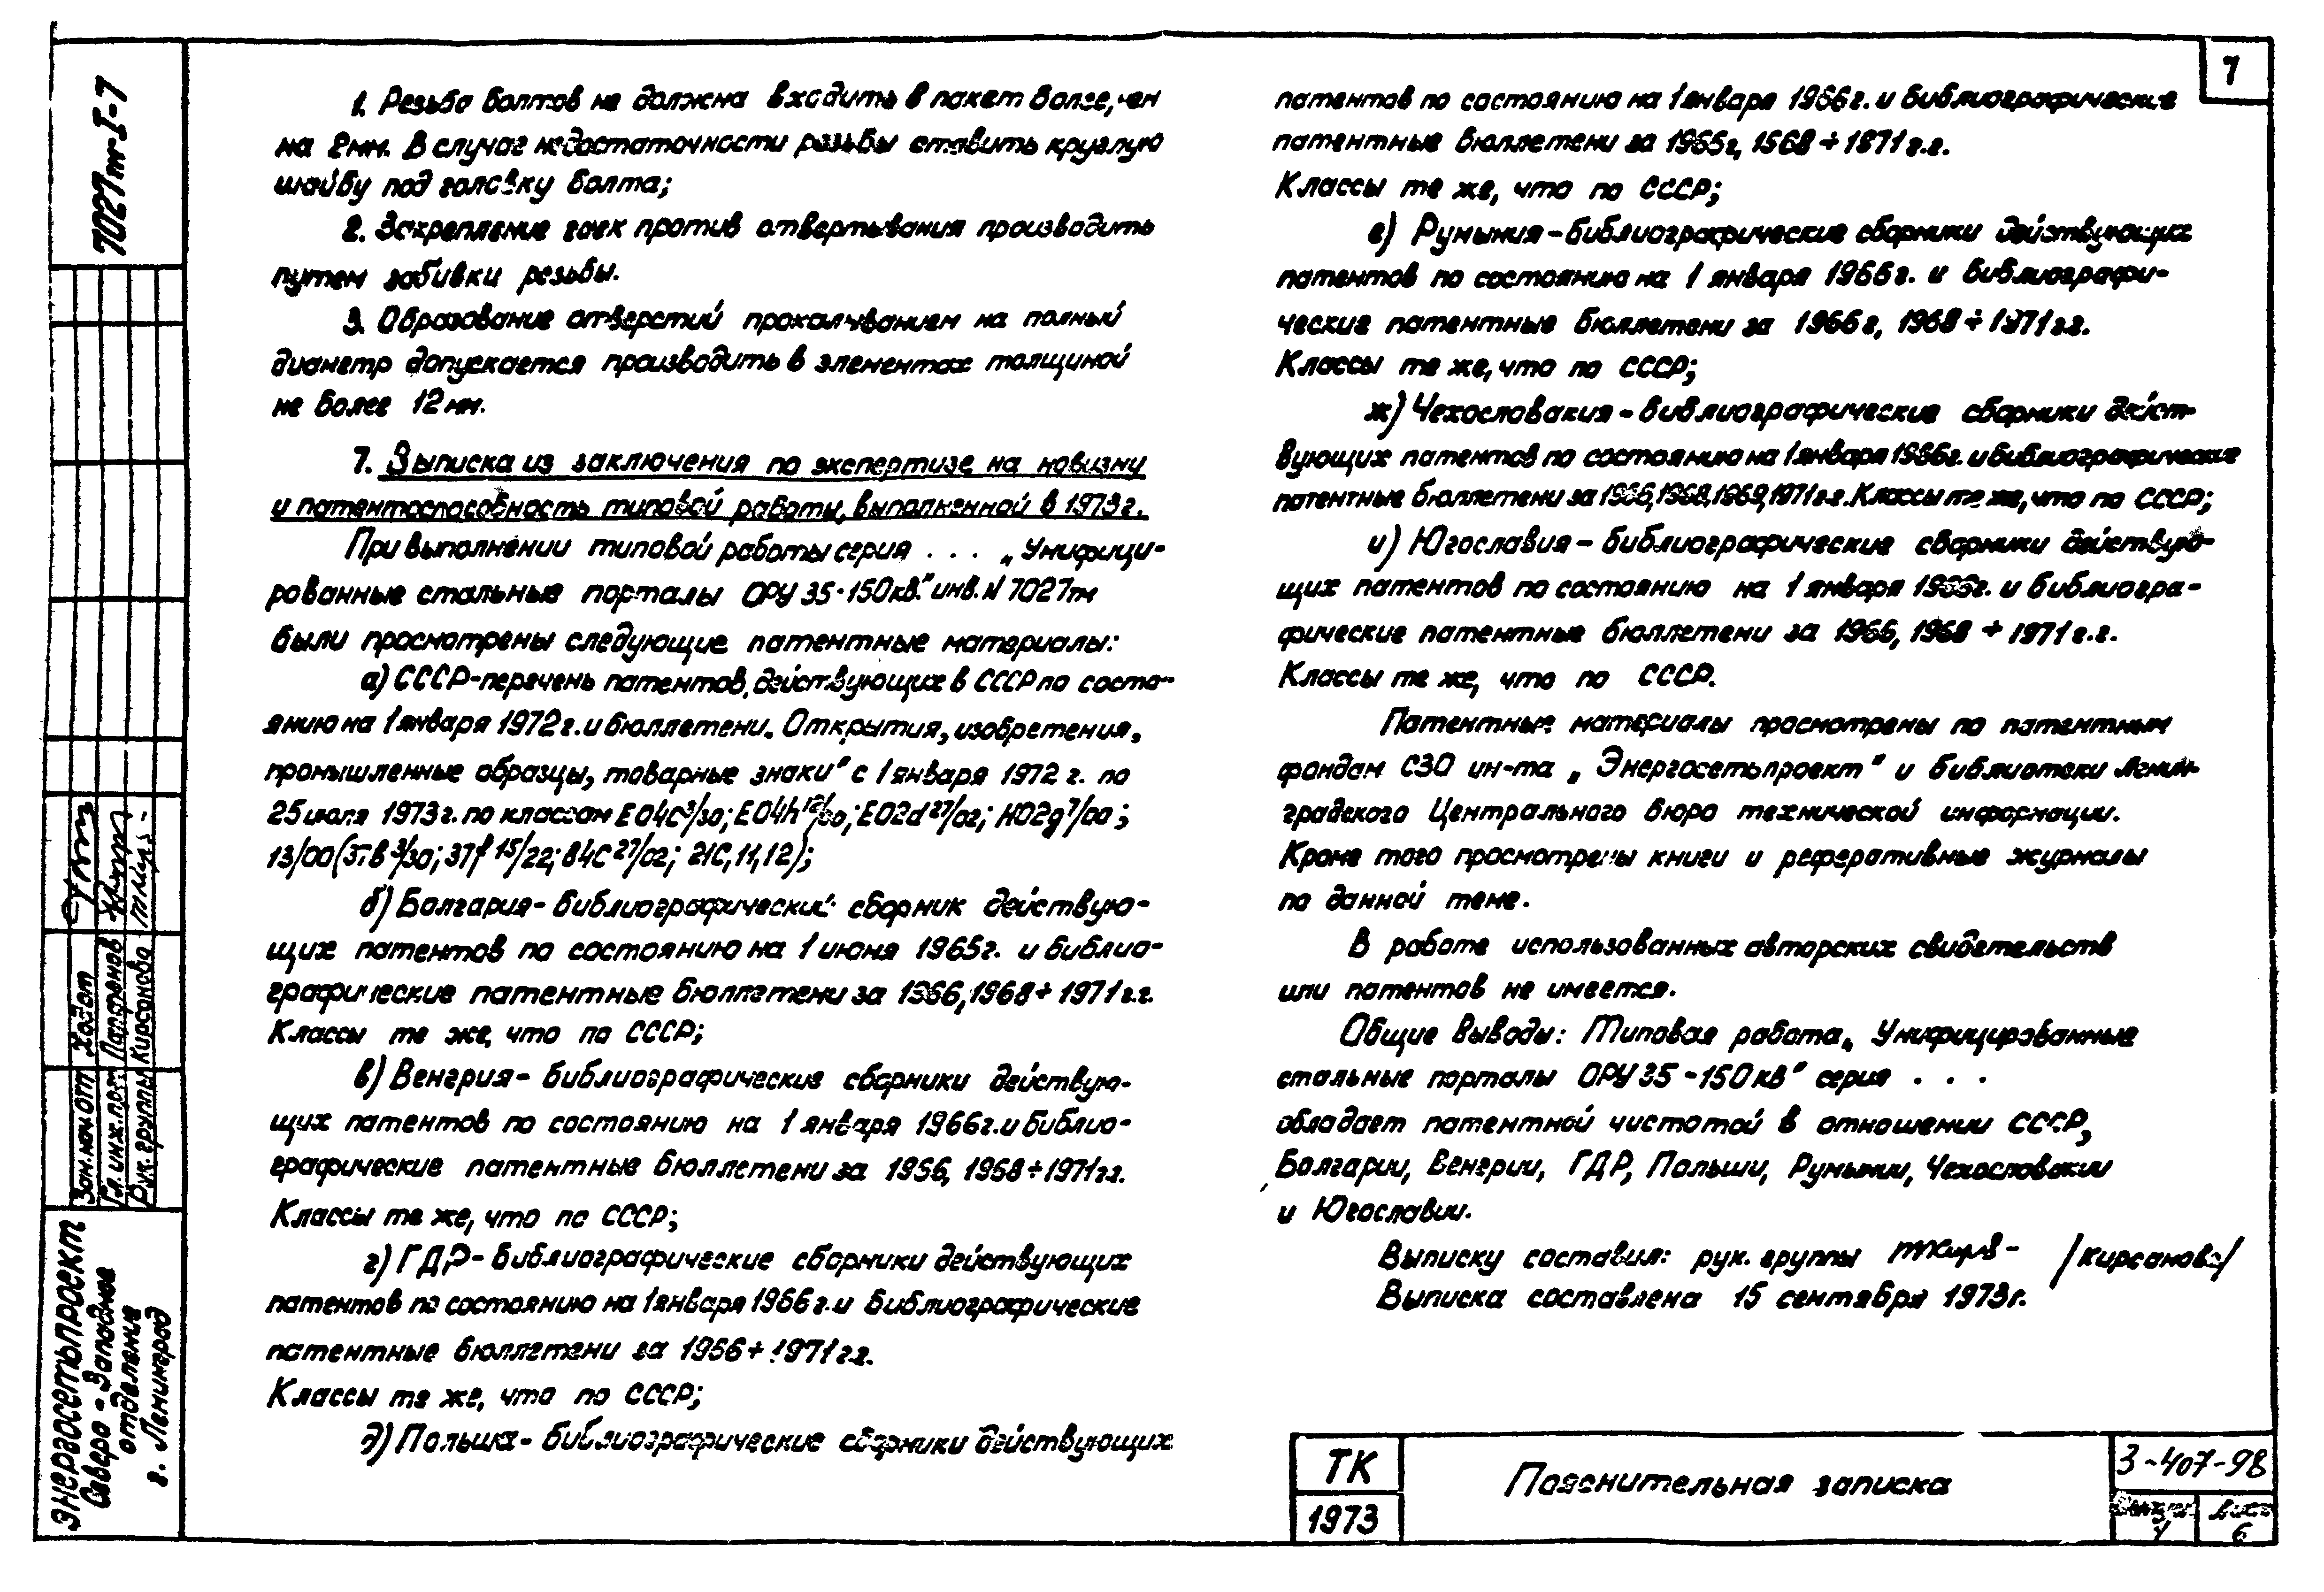 7
7027тм-I-7
1. Резьба болтов не должна входить в пакет более, чем
на 2мм. В случае недостаточности резьбы ставить круглую
шайбу под головку болта;
2. Закрепление гаек против отвертывания производить
путем забивки резьбы.
3. Образование отверстий прокалыванием на полный
диаметр допускается производить в элементах толщиной
не более 12мм.
7. Выписка из заключения по экспертизе на новизну
и патентоспособность типовой работы, выполненной в 1973г.
При выполнении типовой работы серия . . . „Унифици-
рованные стальные порталы ОРУ 35-150кв." инв. N 7027тм
были просмотрены следующие патентные материалы:
а) СССР-перечень патентов, действующих в СССР по состо-
янию на 1 января 1972г. и бюллетени „Открытия, изобретения,
промышленные образцы, товарные знаки" с 1 января 1972 г. по
25 июля 1973г. по классам E04C 3/30; E04h 12/00; E02d 27/02; H02g 7/00;
13/00 (37b 3/30; 37f 15/22; 84C 27/02; 21C, 11, 12);
б) Болгария- библиографический сборник действую-
щих патентов по состоянию на 1 июня 1965г. и библио-
графические патентные бюллетени за 1966, 1968÷1971г.г.
Классы те же, что по СССР;
в) Венгрия- библиографические сборники действую-
щих патентов по состоянию на 1 января 1966г. и библио-
графические патентные бюллетени за 1966, 1968÷1971гг.
Классы те же, что по СССР;
г) ГДР- библиографические сборники действующих
патентов по состоянию на 1 января 1966г. и библиографические
патентные бюллетени за 1966÷1971г.г.
Классы те же, что по СССР;
д) Польша- библиографические сборники действующих
патентов по состоянию на 1 января 1966г. и библиографические
патентные бюллетени за 1965г, 1968÷1971г.г.
Классы те же, что по СССР;
е) Румыния-библиографические сборники действующих
патентов по состоянию на 1 января 1966г. и библиографи-
ческие патентные бюллетени за 1966г, 1968÷1971г.г.
Классы те же, что по СССР;
ж) Чехословакия-библиографические сборники дейст-
вующих патентов по состоянию на 1 января 1966г. и библиографические
патентные бюллетени за 1966, 1968, 1969, 1971г.г. Классы те же, что по СССР;
и) Югославия-библиографические сборники действую-
щих патентов по состоянию на 1 января 1966г. и библиогра-
фические патентные бюллетени за 1966, 1968÷1971г.г.
Классы те же, что по СССР.
Патентные материалы просмотрены по патентным
фондам СЗО ин-та „Энергосетьпроект" и библиотеки Ленин-
градского Центрального бюро технической информации.
Кроме того просмотрены книги и реферативные журналы
по данной теме.
В работе использованных авторских свидетельств
или патентов не имеется.
Общие выводы: Типовая работа „Унифицированные
стальные порталы ОРУ 35-150кв" серия . . .
обладает патентной чистотой в отношении СССР,
Болгарии, Венгрии, ГДР, Польши, Румынии, Чехословакии
и Югославии.
Выписку составил: рук. группы /Кирсанова/
Выписка составлена 15 сентября 1973г.
Зам. нач. от
Гл. инж. пр. Парфенов
Рук. группы Кирсанова
Энергосетьпроект
Северо-Западное
отделение
г. Ленинград
ТК
1973
Пояснительная записка
3-407-98
Выпуск
1
Лист
6